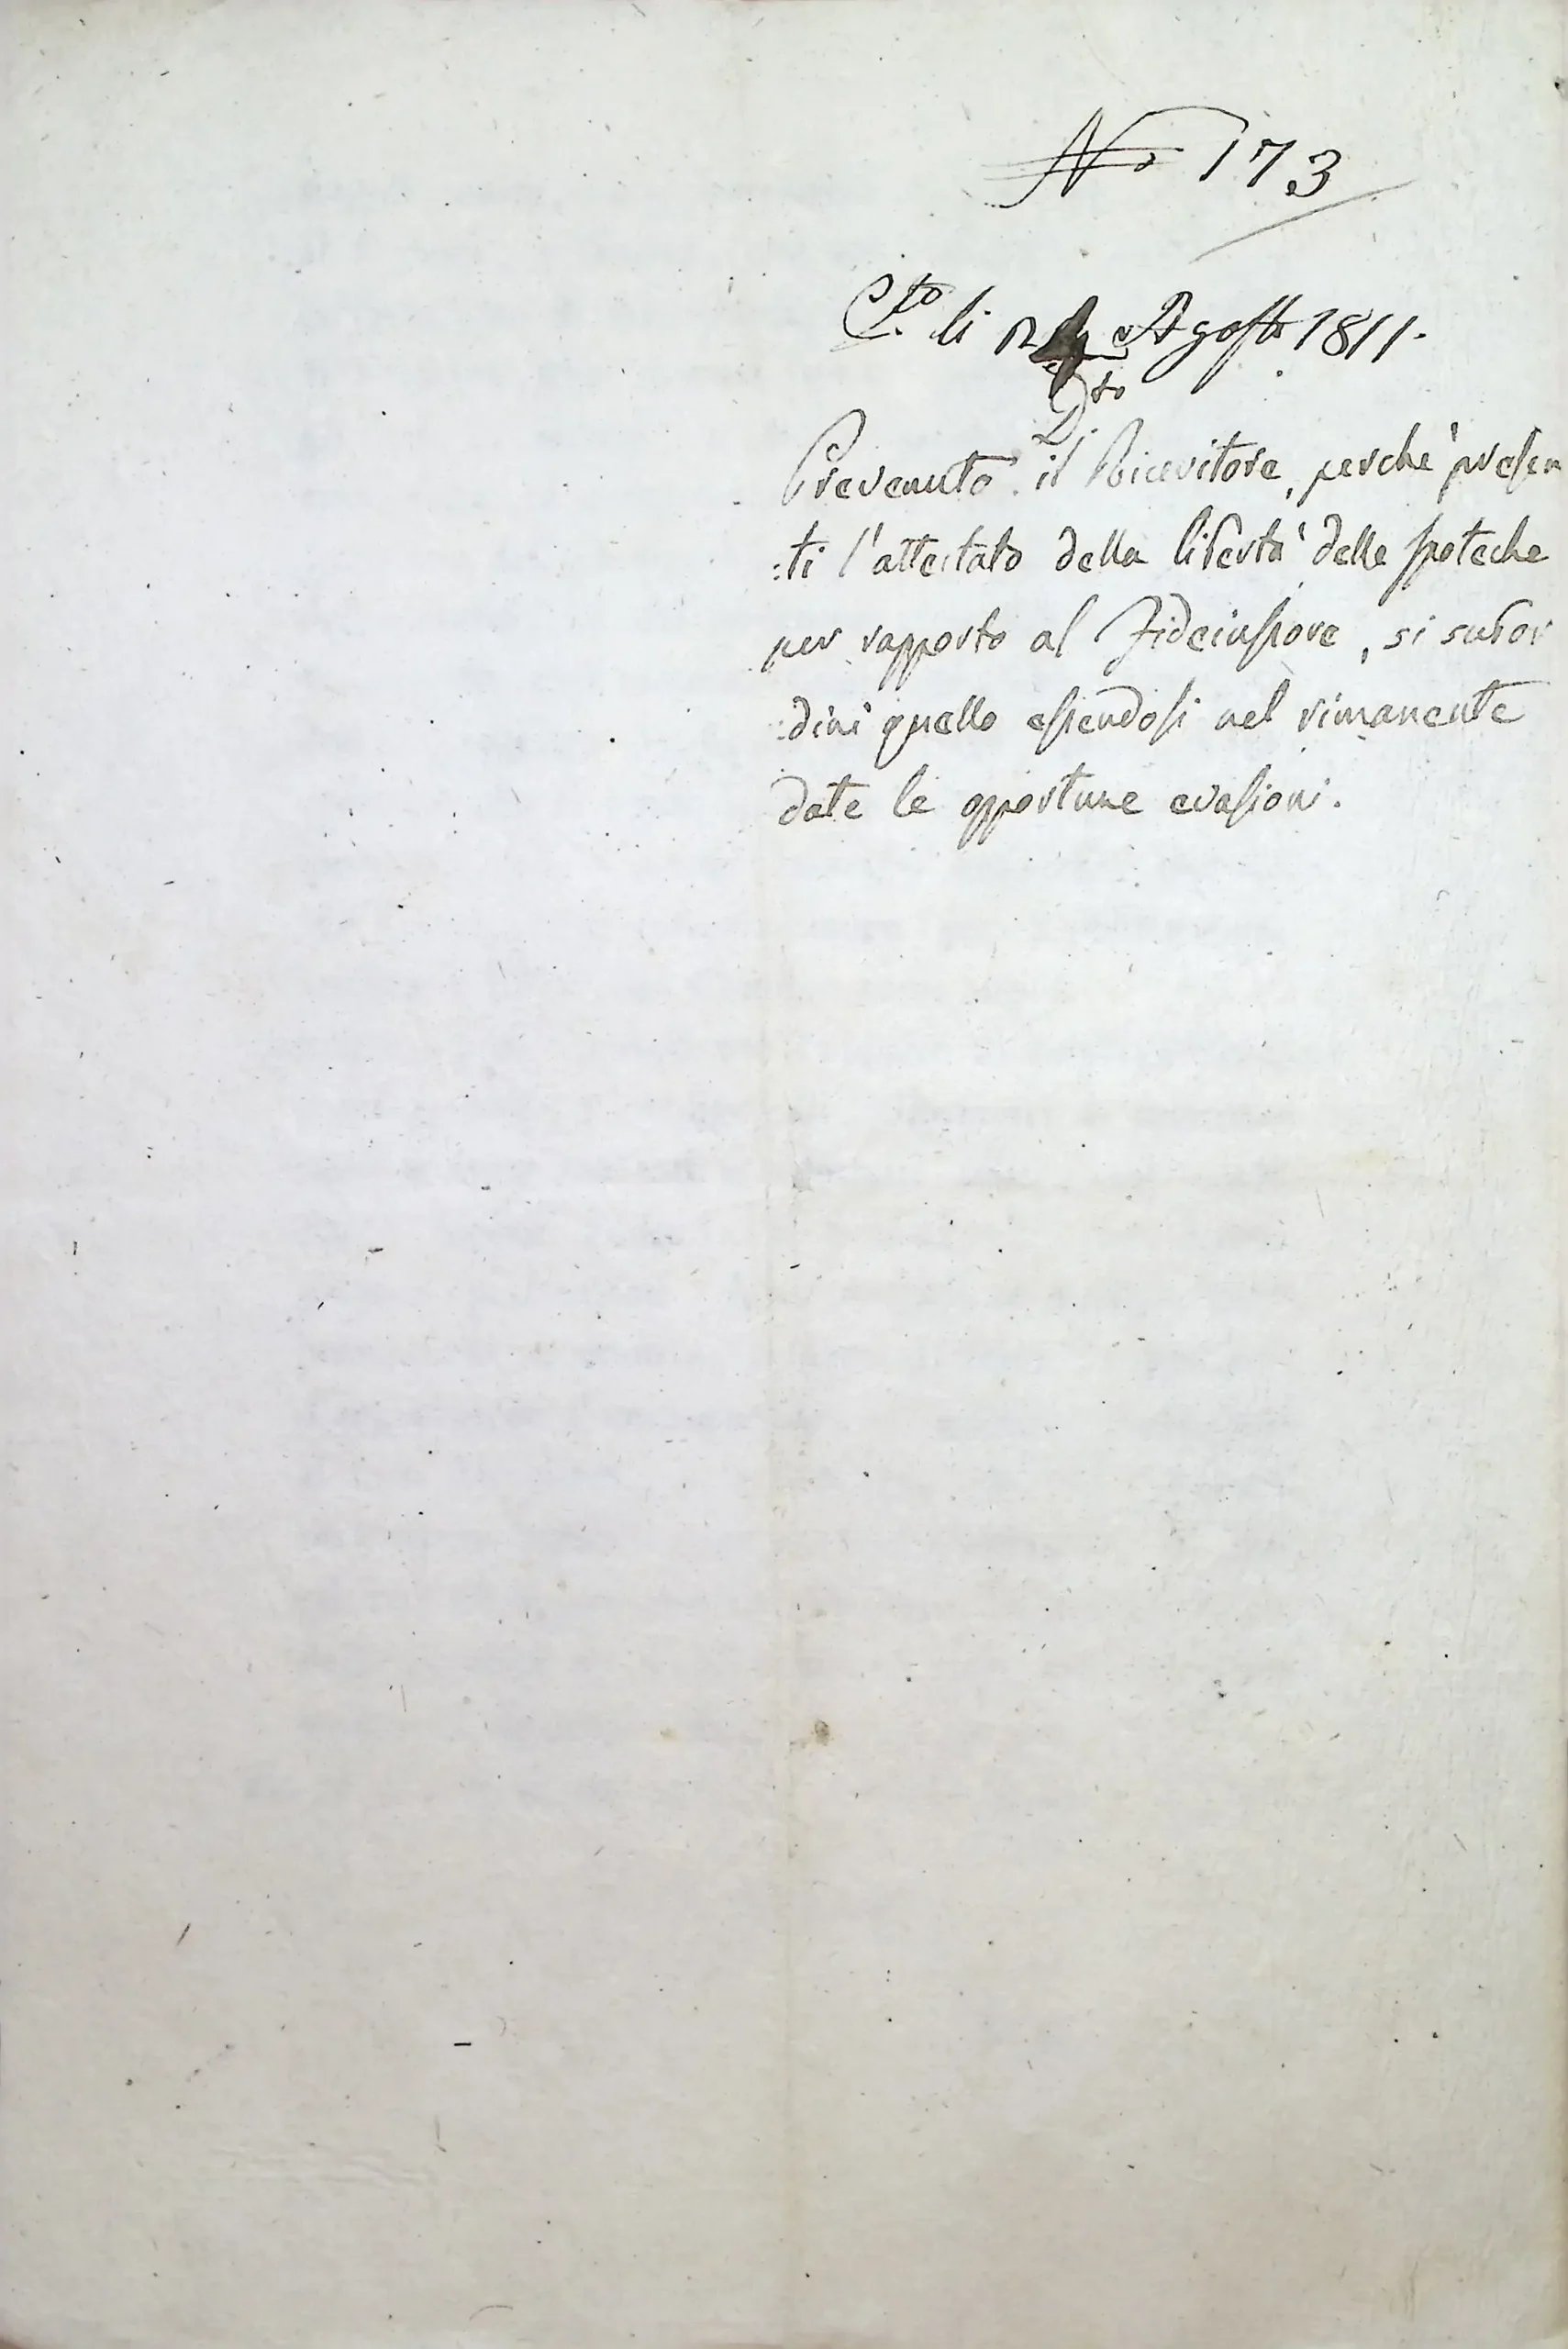 No 173
P.to li Agosto 1811.
D.to
Prevenuto il Ricevitore, perchè presen
:ti l'attestato della libertà delle Ipoteche
per rapporto al Fideiussore, si subor
:dini quello essendosi nel rimanente
date le opportune evasioni.